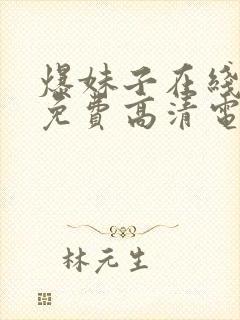 爆妹子在线
免費高清電
林元生